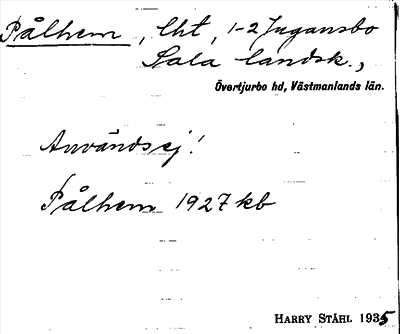 Pålhem, lht, 1-2 Jugansbo
Sala landsk.,
Övertjurbo hd, Västmanlands län.
Användsej!
Pålhem 1927 kb
HARRY STÅHL 1935